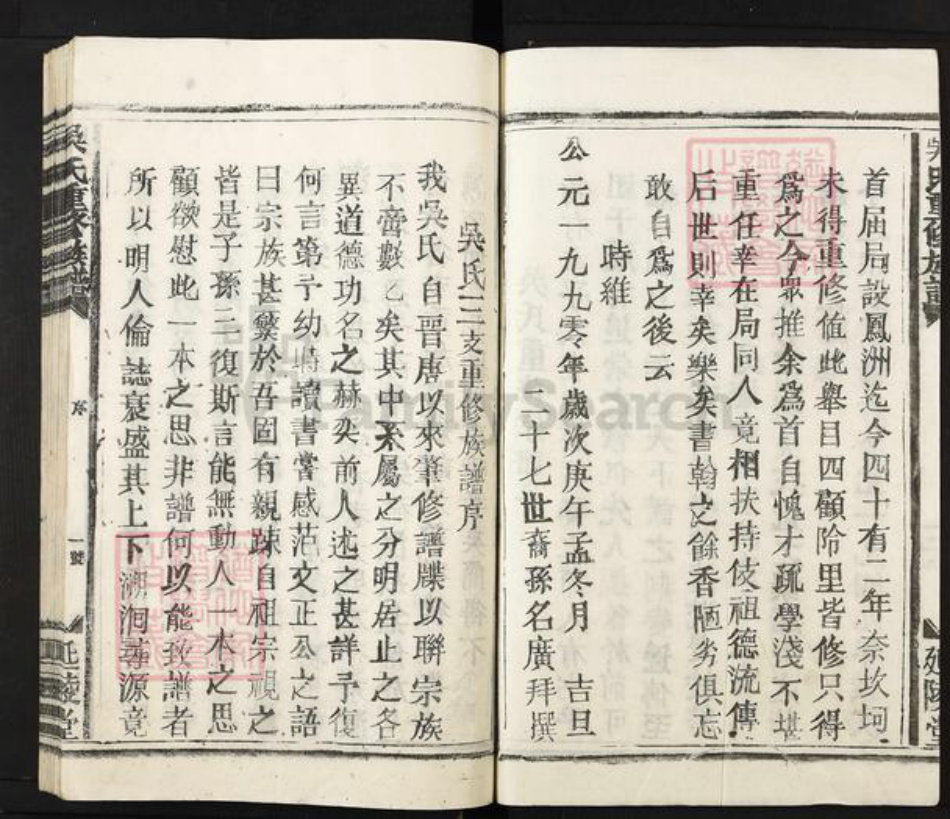 首屆局設鳳洲迄今四十有二年奈坎坷
未得重修值此舉目四顧隣里皆修只得
爲之今眾推余爲首自愧才疏學淺不堪
重任幸在局同人竟相扶持伎祖德流傳
后世則幸矣樂矣書翰之餘香陋劣俱忘
敢自爲之後云
時維
公元一九九零年歲次庚午孟冬月 吉旦
二十七世裔孫名廣拜撰
吳氏三支重修族譜序
我吳氏自晉唐以來肇修譜牒以聯宗族
不啻數乙矣其中系屬之分明居止之各
異道德功名之赫奕前人述之甚詳予復
何言第予幼時讀書嘗感范文正公之語
曰宗族甚繁於吾固有親踈自祖宗視之
皆是子孫三復斯言能無動人一本之思
顧欲慰此一本之思非譜何以能致譜者
所以明人倫誌衰盛其上下溯洄尋源竟
吳氏重修族譜
序
一號
延陵堂
吳氏重修族譜
延陵堂
FamilySearch